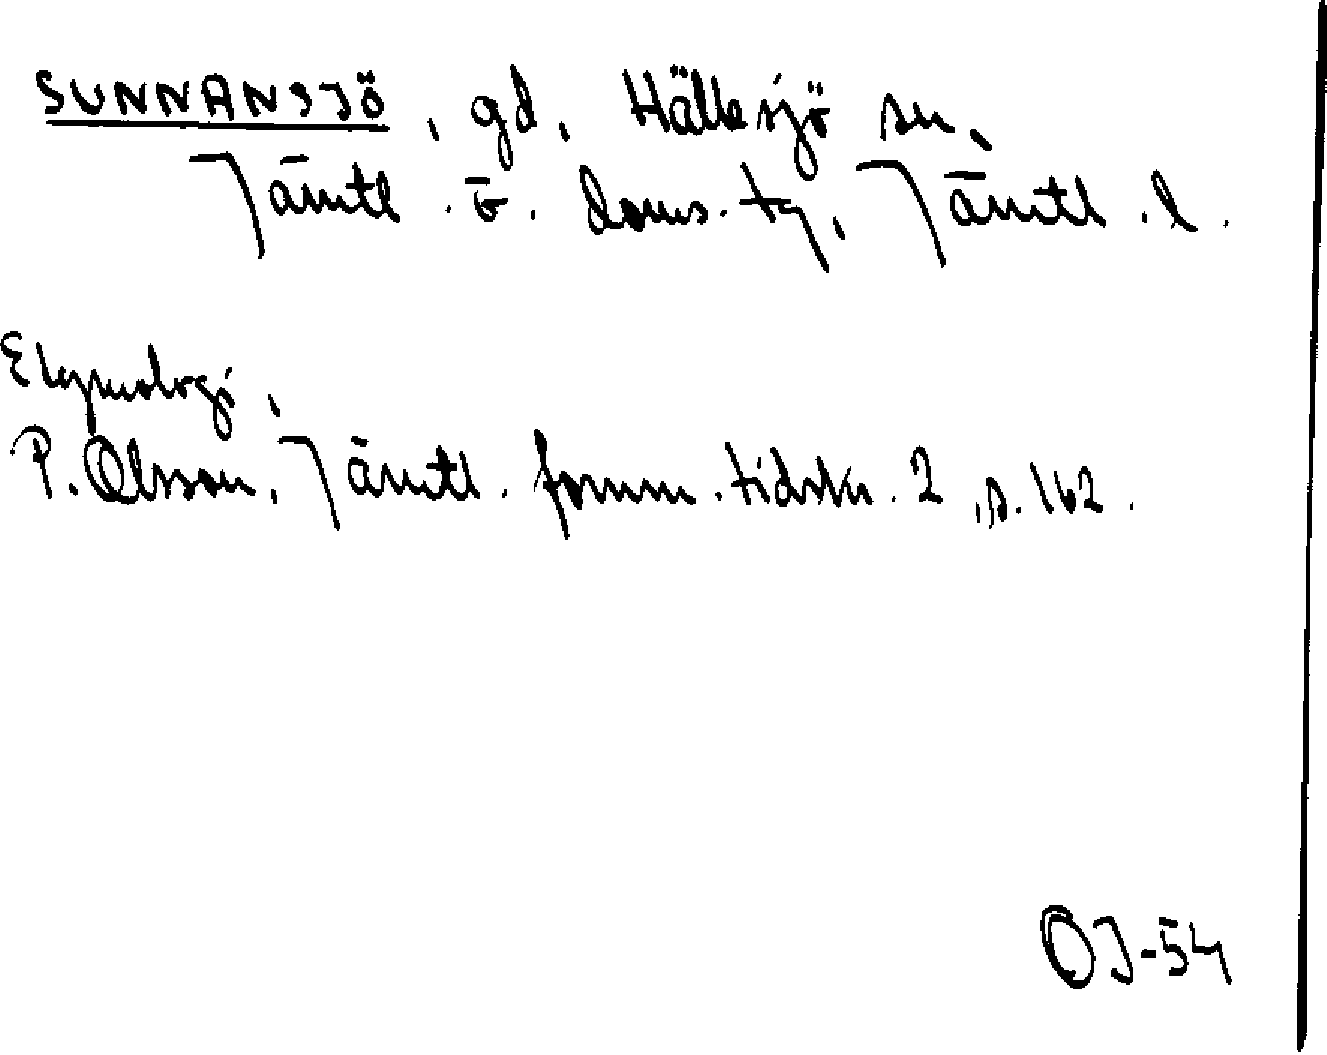 SUNNANSJÖ, gd, Hällesjö sn,
Jämtl. ö. doms. tg, Jämtl. l.
Etymologi,
P. Olsson, Jämtl. fornm. tidskr. 2, s. 162.
OJ-54